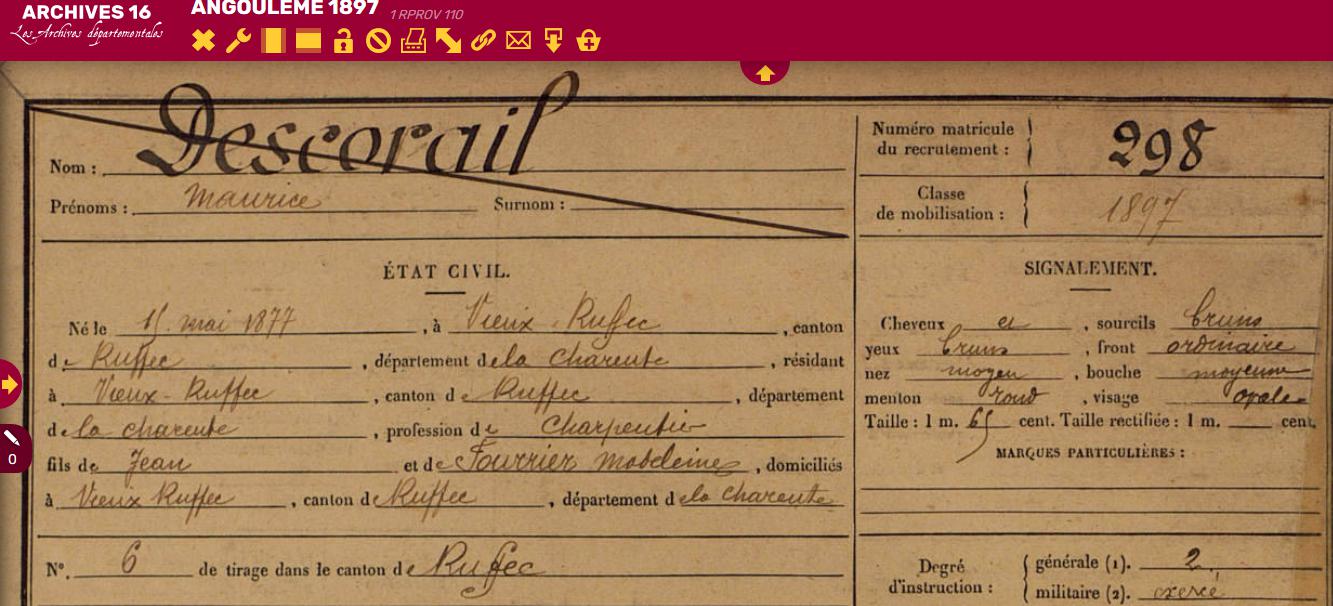 ARCHIVES 16
Les Archives départementales
ANGOULEME 1897 1 RPROV 110
0
Nom : Descorail
Prénoms : Maurice Surnom :
Numéro matricule du recrutement : 298
Classe de mobilisation : 1897
ÉTAT CIVIL.
Né le 15 mai 1877, à Vieux-Ruffec, canton
de Ruffec, département de la Charente, résidant
à Vieux-Ruffec, canton de Ruffec, département
de la charente, profession de Charpentier
fils de Jean et de Fourrier Madeleine, domiciliés
à Vieux Ruffec, canton de Ruffec, département de la Charente
N°. 6 de tirage dans le canton de Ruffec
SIGNALEMENT.
Cheveux et, sourcils bruns
yeux bruns, front ordinaire
nez moyen, bouche moyenne
menton rond, visage ovale
Taille : 1 m. 65 cent. Taille rectifiée : 1 m. cent.
MARQUES PARTICULIÈRES :
Degré d'instruction : générale (1). 2
militaire (2). exercé